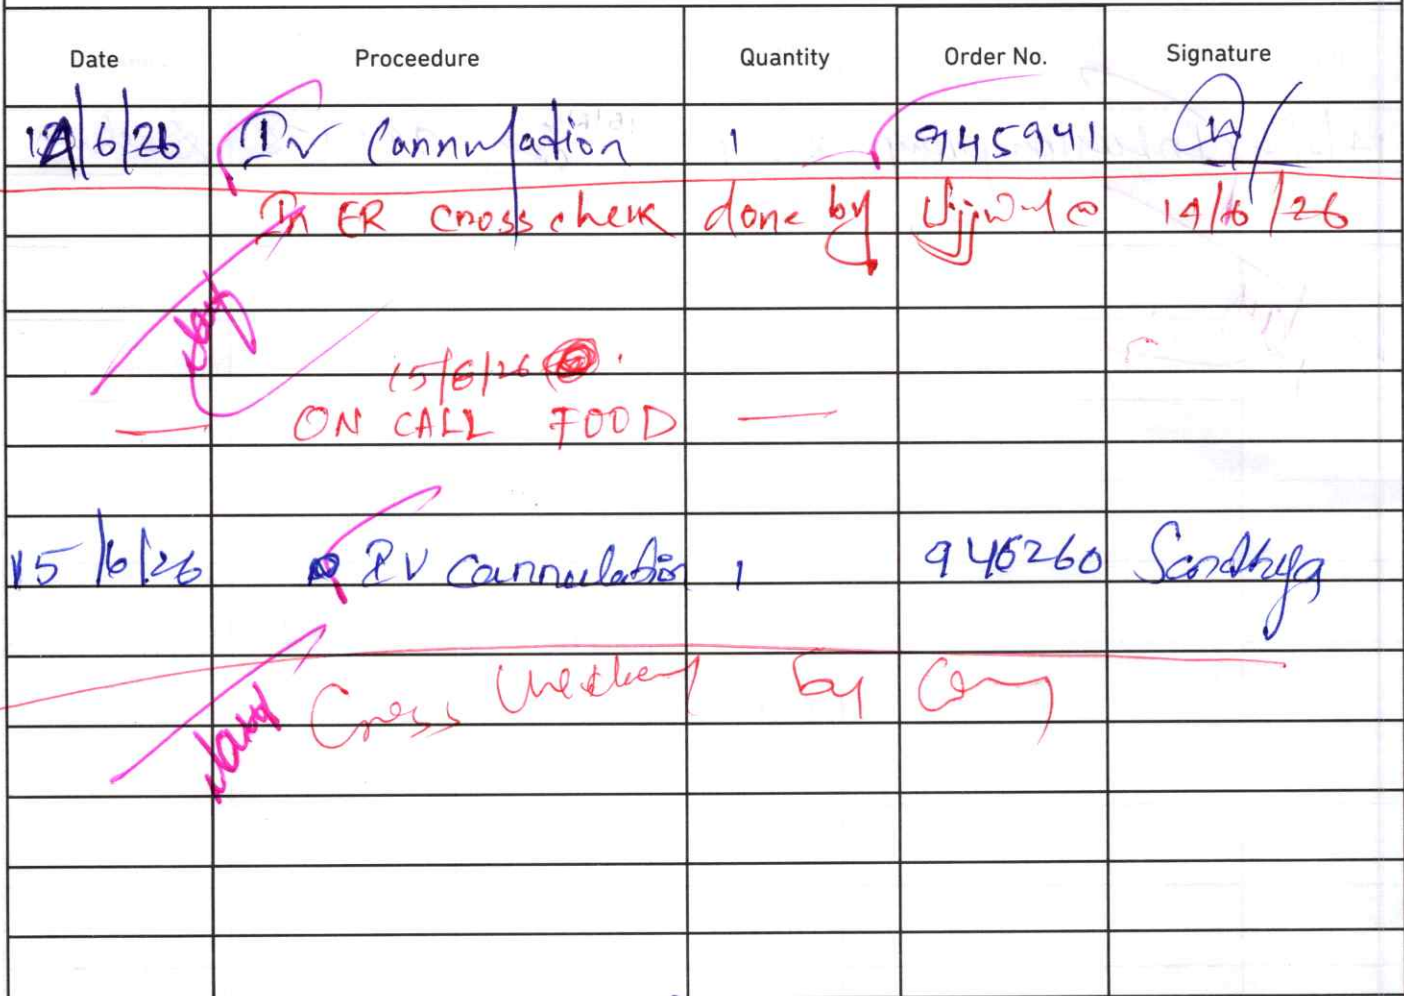 Date Proceedure Quantity Order No. Signature
14/6/26 IV Cannulation 1 945941
In ER cross check done by @ 14/6/26
15/6/26
— ON CALL FOOD —
15/6/26 IV cannulation 1 946260 Sandhya
Cross checked by